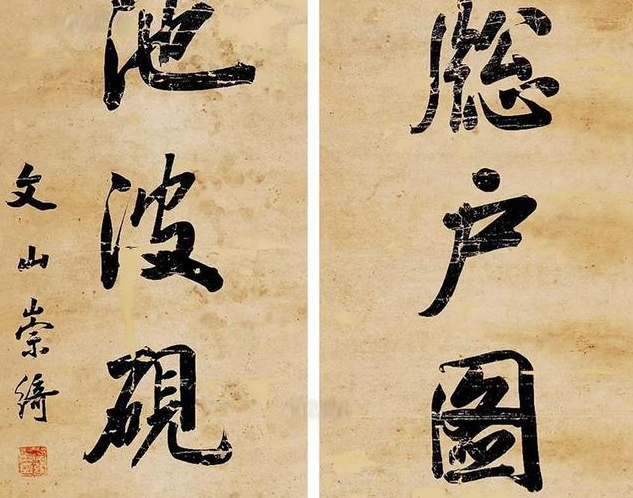 牕户圖
池波硯
文山崇綺